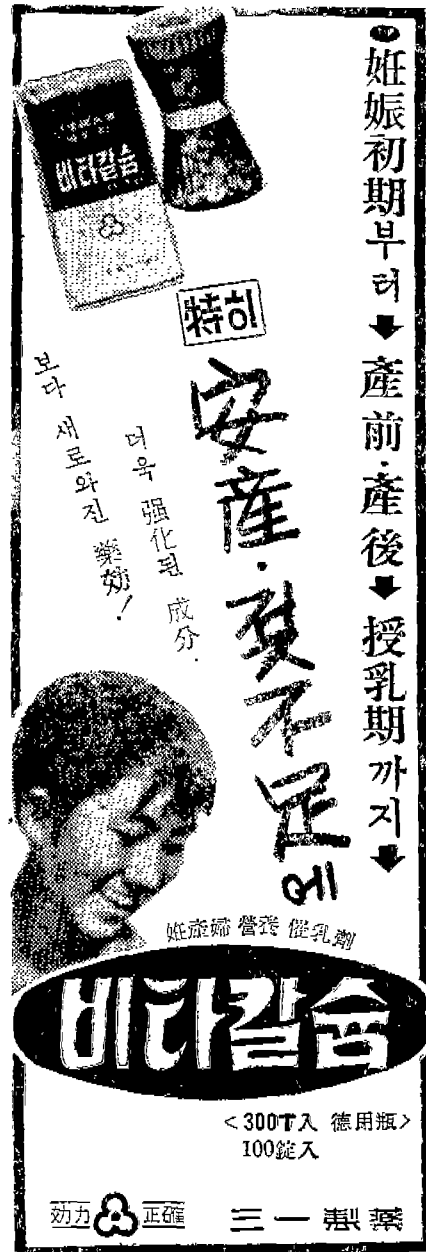 妊娠初期부터➡產前·產後➡授乳期까지➡
비타칼슘
特히
安産·젖不足에
더욱 强化된 成分.
보다 새로와진 藥効!
妊産婦 營養 催乳劑
비타칼슘
<300T入 德用瓶>
100錠入
効力 正確
三一製藥